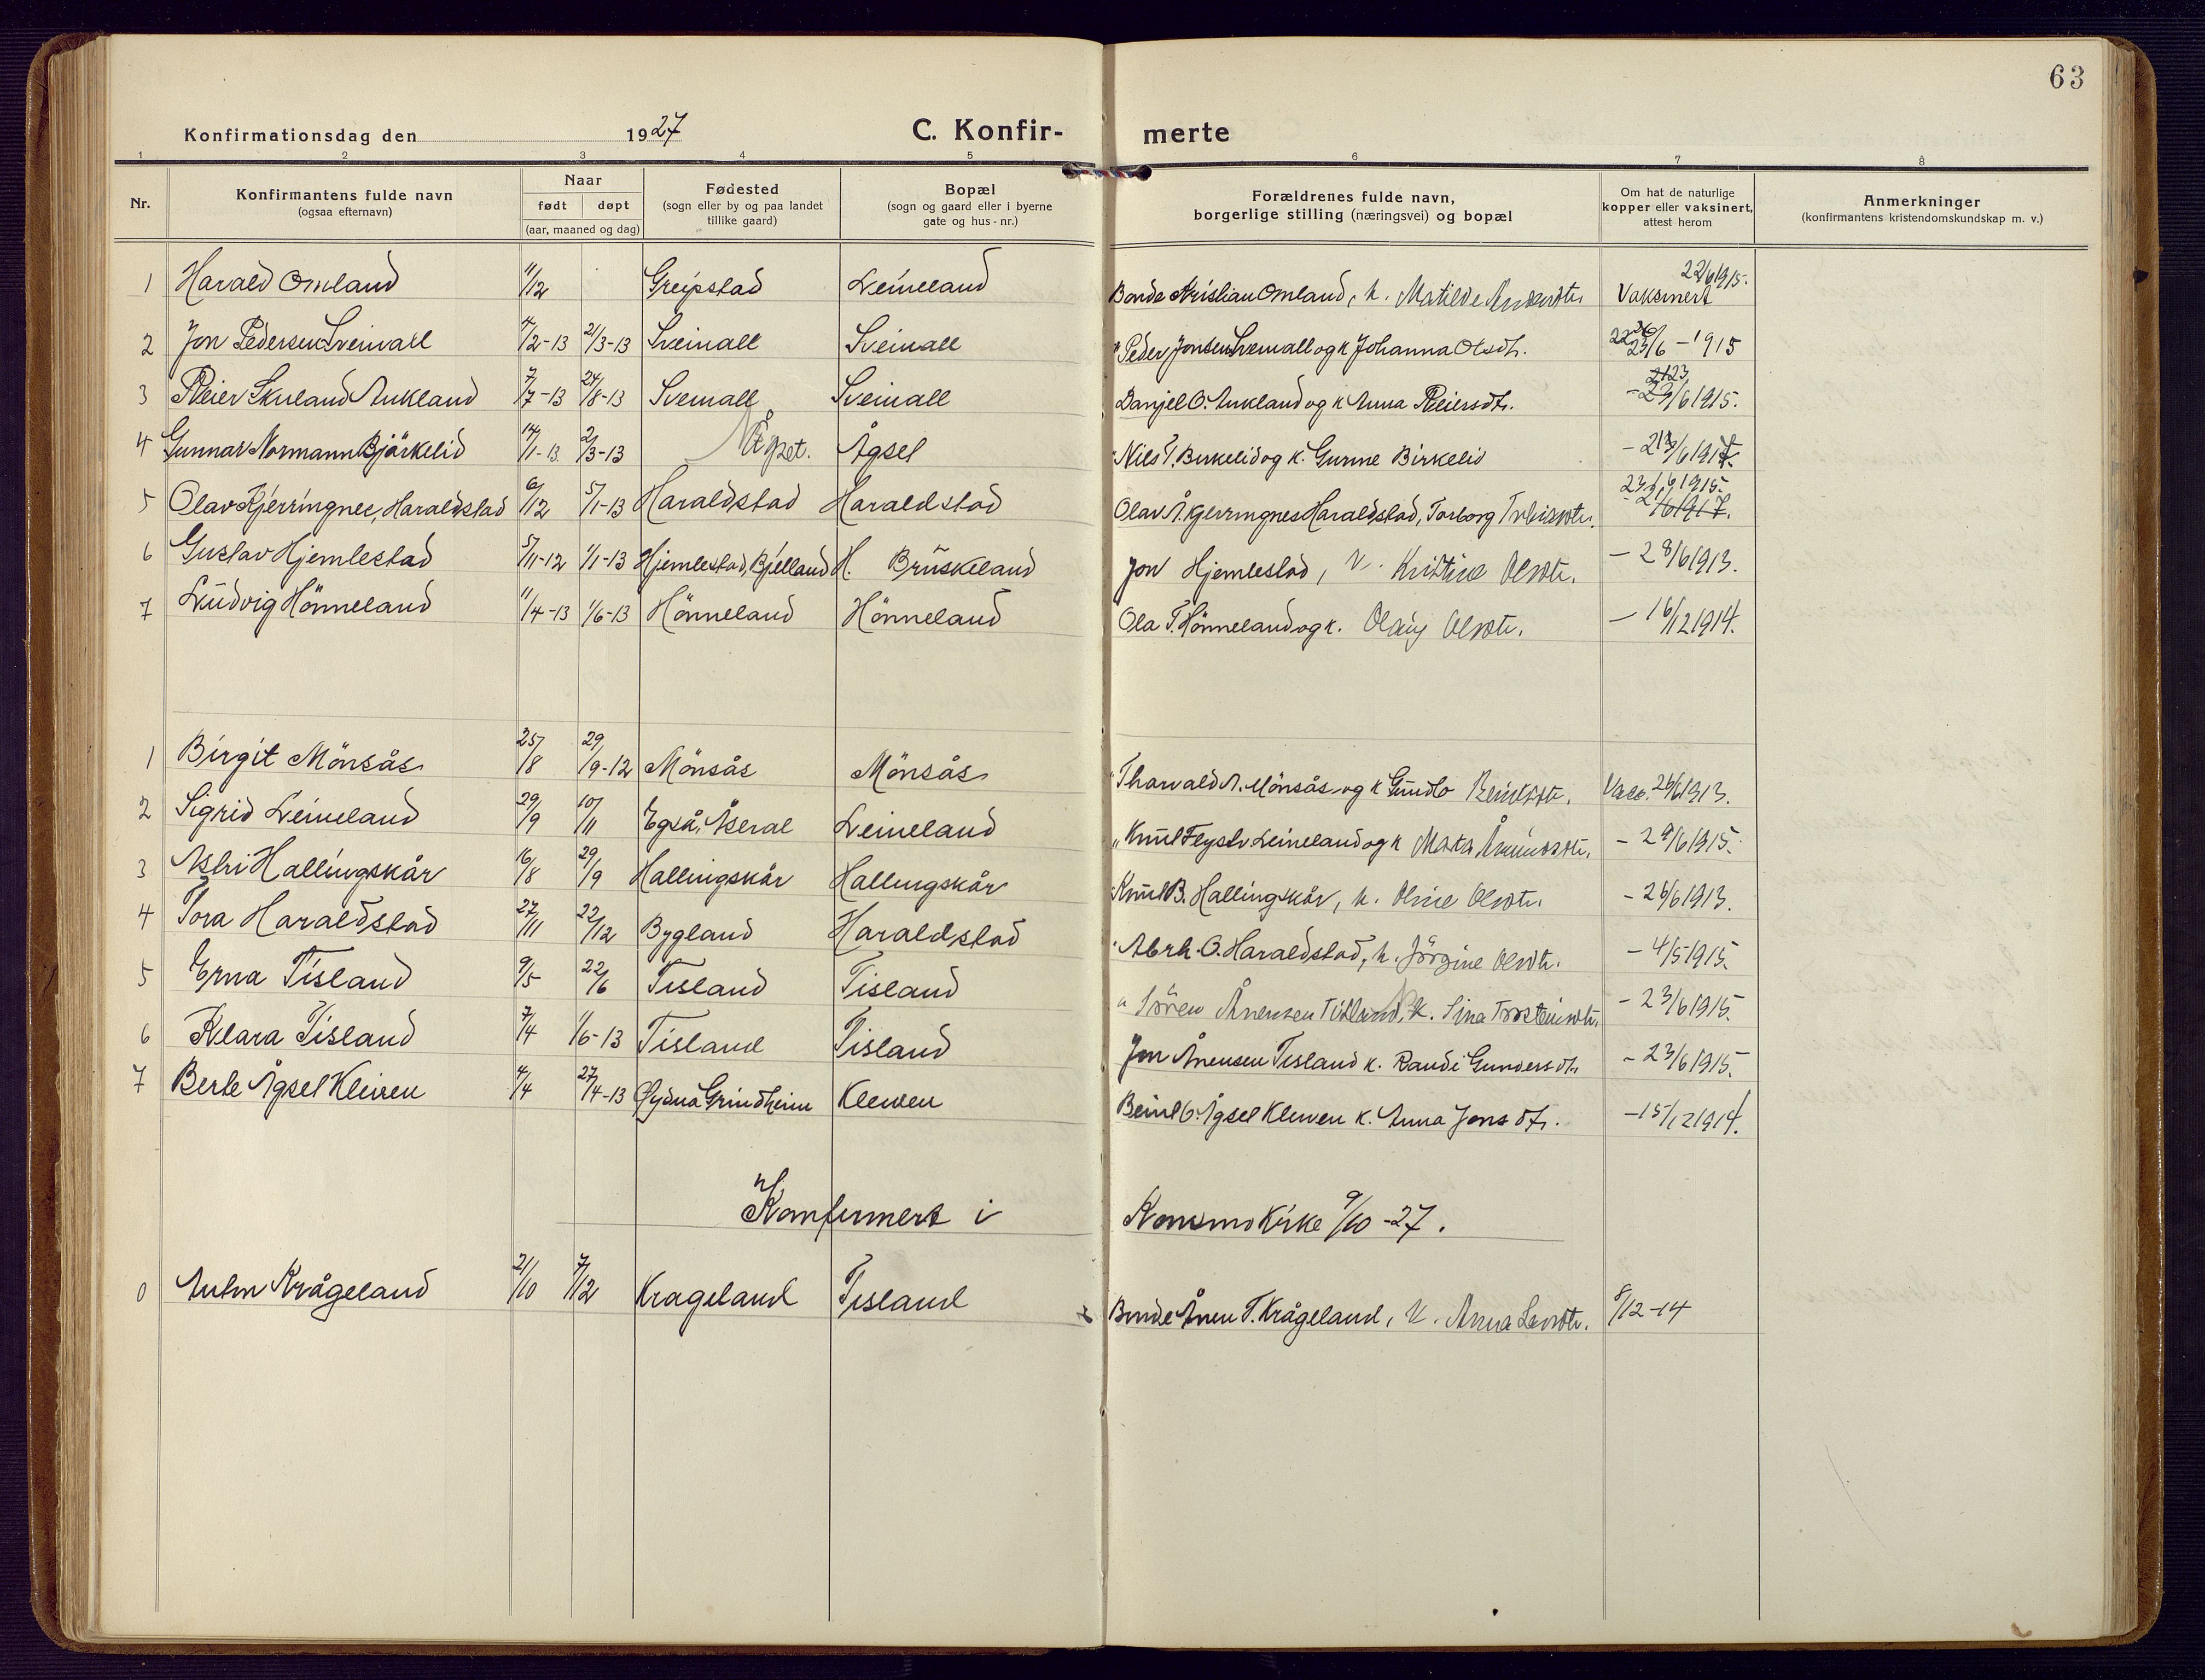 63
Konfirmationsdag den 1927 C. Konfir- merte
1 2 3 4 5 6 7 8
Nr. Konfirmantens fulde navn (ogsaa efternavn) Naar født døpt (aar, maaned og dag) Fødested (sogn eller by og paa landet tillike gaard) Bopæl (sogn og gaard eller i byerne gate og hus-nr.) Forældrenes fulde navn, borgerlige stilling (næringsvei) og bopæl Om hat de naturlige kopper eller vaksinert, attest herom Anmerkninger (konfirmantens kristendomskundskap m. v.)
1 Harald Omland 11/12 Greipstad Leineland Bonde Kristian Omland, k. Matilde Vaksinert 22/6 1915.
2 Jon Pedersen Sveinall 4/2-13 21/3-13 Sveinall Sveinall " Peder Jonsen Sveinall og k Johanna Olsdtr. /6 - 1915
3 Reier Skuland Aukland 7/7-13 24/8-13 Sveinall Sveinall Danjel O. Aukland og k Anna Reiersdtr. /6 1915.
4 Gunnar Normann Bjørkelid 14/1-13 2/3-13 Ågsel Nils T. Birkelid og k. Gurine Birkelid
5 Olav Kjerringnes, Haraldstad 6/12 5/1-13 Haraldstad Haraldstad Olav Å. Kjerringnes Haraldstad, Torborg 23/6 1915.
6 Gustav Hjemlestad 5/11-12 1/1-13 Hjemlestad, Bjelland H. Brüskeland Jon Hjemlestad, k. Kristine Olsdtr. - 28/6 1913.
7 Ludvig Hönneland 11/4-13 1/6-13 Hönneland Hönneland Ola T. Hönneland og k. Olaug Olsdtr. - 16/12 1914.
1 Birgit Mönsås 25/8 29/9-12 Mönsås Mönsås " Thorvald A. Mönsås og k Gundlo Vacc. 26/6 1913.
2 Sigrid Leineland 29/9 10/11 Egså, Åseral Leineland " Knut Leineland og k - 29/6 1915.
3 Astri Hallingskår 16/8 29/9 Hallingskår Hallingskår " Knut B. Hallingskår, k. Oline Olsdtr. - 26/6 1913.
4 Tora Haraldstad 27/11 22/12 Bygland Haraldstad " Abrh. O. Haraldstad, k. Jörgine Olsdtr. - 4/5 1915.
5 Erna Tisland 9/5 22/6 Tisland Tisland " Sören Ånensen Tisland, k. Sina Torsteinsdtr. - 23/6 1915.
6 Klara Tisland 7/4 1/6-13 Tisland Tisland Jon Ånensen Tisland k. Randi Gundersdtr. - 23/6 1915.
7 Berte Ågsel Kleiven 4/4 27/4-13 Øydna Grindheim Kleiven Beint G. Ågsel Kleiven k. Anna Jonsdtr. - 15/12 1914.
Konfirmert i Konsmo Kirke 9/10-27.
0 Anton Krågeland 21/10 7/12 Krageland Tisland Bonde Ånen T. Krågeland, k. Anna Larsdtr. 8/12-14